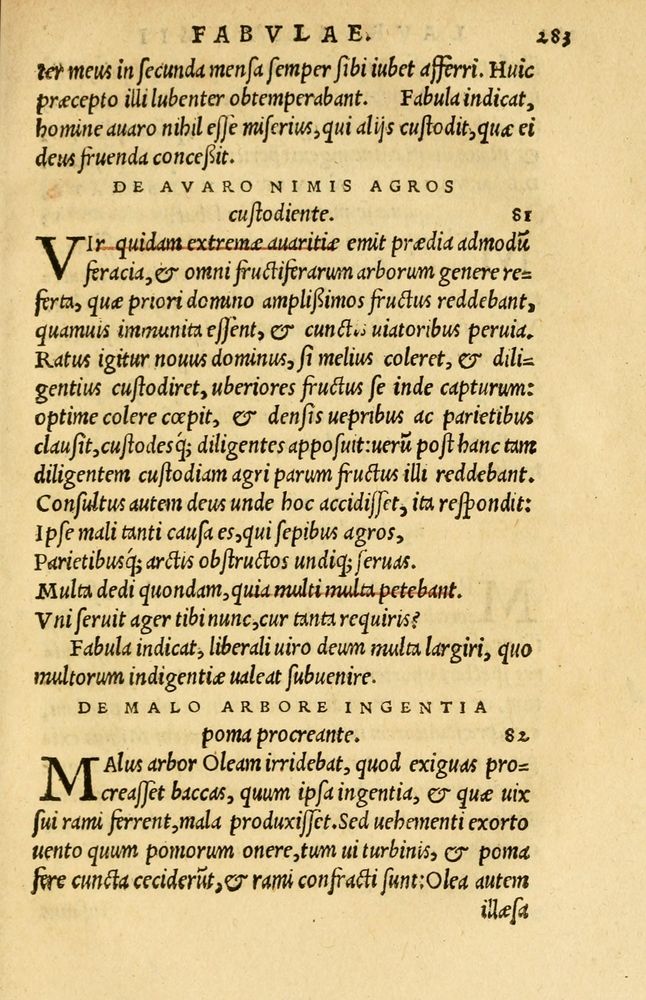 FABVLAE. 283
ter meus in secunda mensa semper sibi iubet afferri. Huic
præcepto illi lubenter obtemperabant. Fabula indicat,
homine auaro nihil esse miserius, qui alijs custodit, quæ ei
deus fruenda conceßit.
DE AVARO NIMIS AGROS
custodiente. 81
VIr quidam extremæ auaritiæ emit prædia admodũ
feracia, & omni fructiferarum arborum genere re=
ferta, quæ priori domino amplißimos fructus reddebant,
quamuis immunita essent, & cunctis uiatoribus peruia.
Ratus igitur nouus dominus, si melius coleret, & dili=
gentius custodiret, uberiores fructus se inde capturum:
optime colere cœpit, & densis uepribus ac parietibus
clausit, custodesq́; diligentes apposuit: uerũ post hanc tam
diligentem custodiam agri parum fructus illi reddebant.
Consultus autem deus unde hoc accidisset, ita respondit:
Ipse mali tanti causa es, qui sepibus agros,
Parietibusq́; arctis obstructos undiq; seruas.
Multa dedi quondam, quia multi multa petebant.
Vni seruit ager tibi nunc, cur tanta requiris?
Fabula indicat, liberali uiro deum multa largiri, quo
multorum indigentiæ ualeat subuenire.
DE MALO ARBORE INGENTIA
poma procreante. 82
MAlus arbor Oleam irridebat, quod exiguas pro=
creasset baccas, quum ipsa ingentia, & quæ uix
sui rami ferrent, mala produxisset. Sed uehementi exorto
uento quum pomorum onere, tum ui turbinis, & poma
fere cuncta ceciderũt, & rami confracti sunt: Olea autem
illæsa